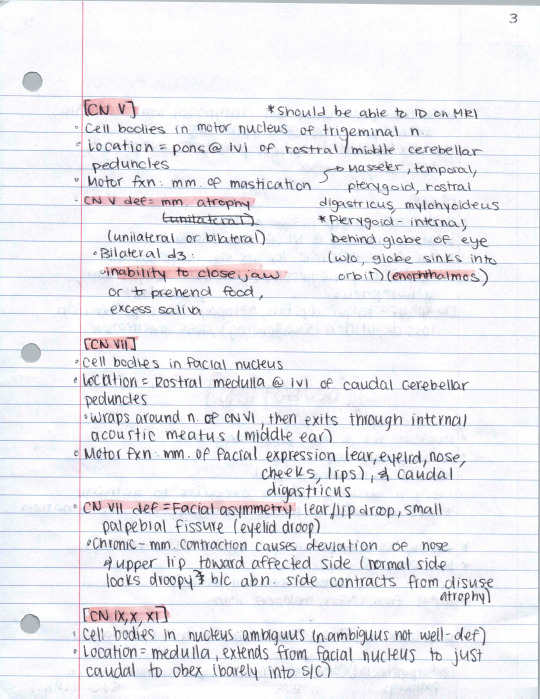 3
[CN V]
*Should be able to ID on MRI
• Cell bodies in motor nucleus of trigeminal n.
• Location = pons @ lvl of rostral/middle cerebellar
peduncles
• Motor fxn: mm. of mastication → Masseter, temporal,
pterygoid, rostral
digastricus, mylohyoideus
- CN V def = mm. atrophy
(unilateral)
(unilateral or bilateral)
*Pterygoid - internal,
behind globe of eye
(w/o, globe sinks into
orbit) (enophthalmos)
• Bilateral dz:
• inability to close jaw
or to prehend food,
excess saliva
[CN VII]
• Cell bodies in facial nucleus
• Location = Rostral medulla @ lvl of caudal cerebellar
peduncles
• Wraps around n. of CN VI, then exits through internal
acoustic meatus (middle ear)
• Motor fxn: mm. of facial expression (ear, eyelid, nose,
cheeks, lips), & caudal
digastricus
• CN VII def = Facial asymmetry (ear/lip droop, small
palpebral fissure (eyelid droop)
• Chronic - mm. contraction causes deviation of nose
& upper lip toward affected side (normal side
looks droopy b/c abn. side contracts from disuse
atrophy)
[CN IX, X, XI]
• Cell bodies in nucleus ambiguus (n. ambiguus not well-def)
• Location = medulla, extends from facial nucleus to just
caudal to obex (barely into S/C)